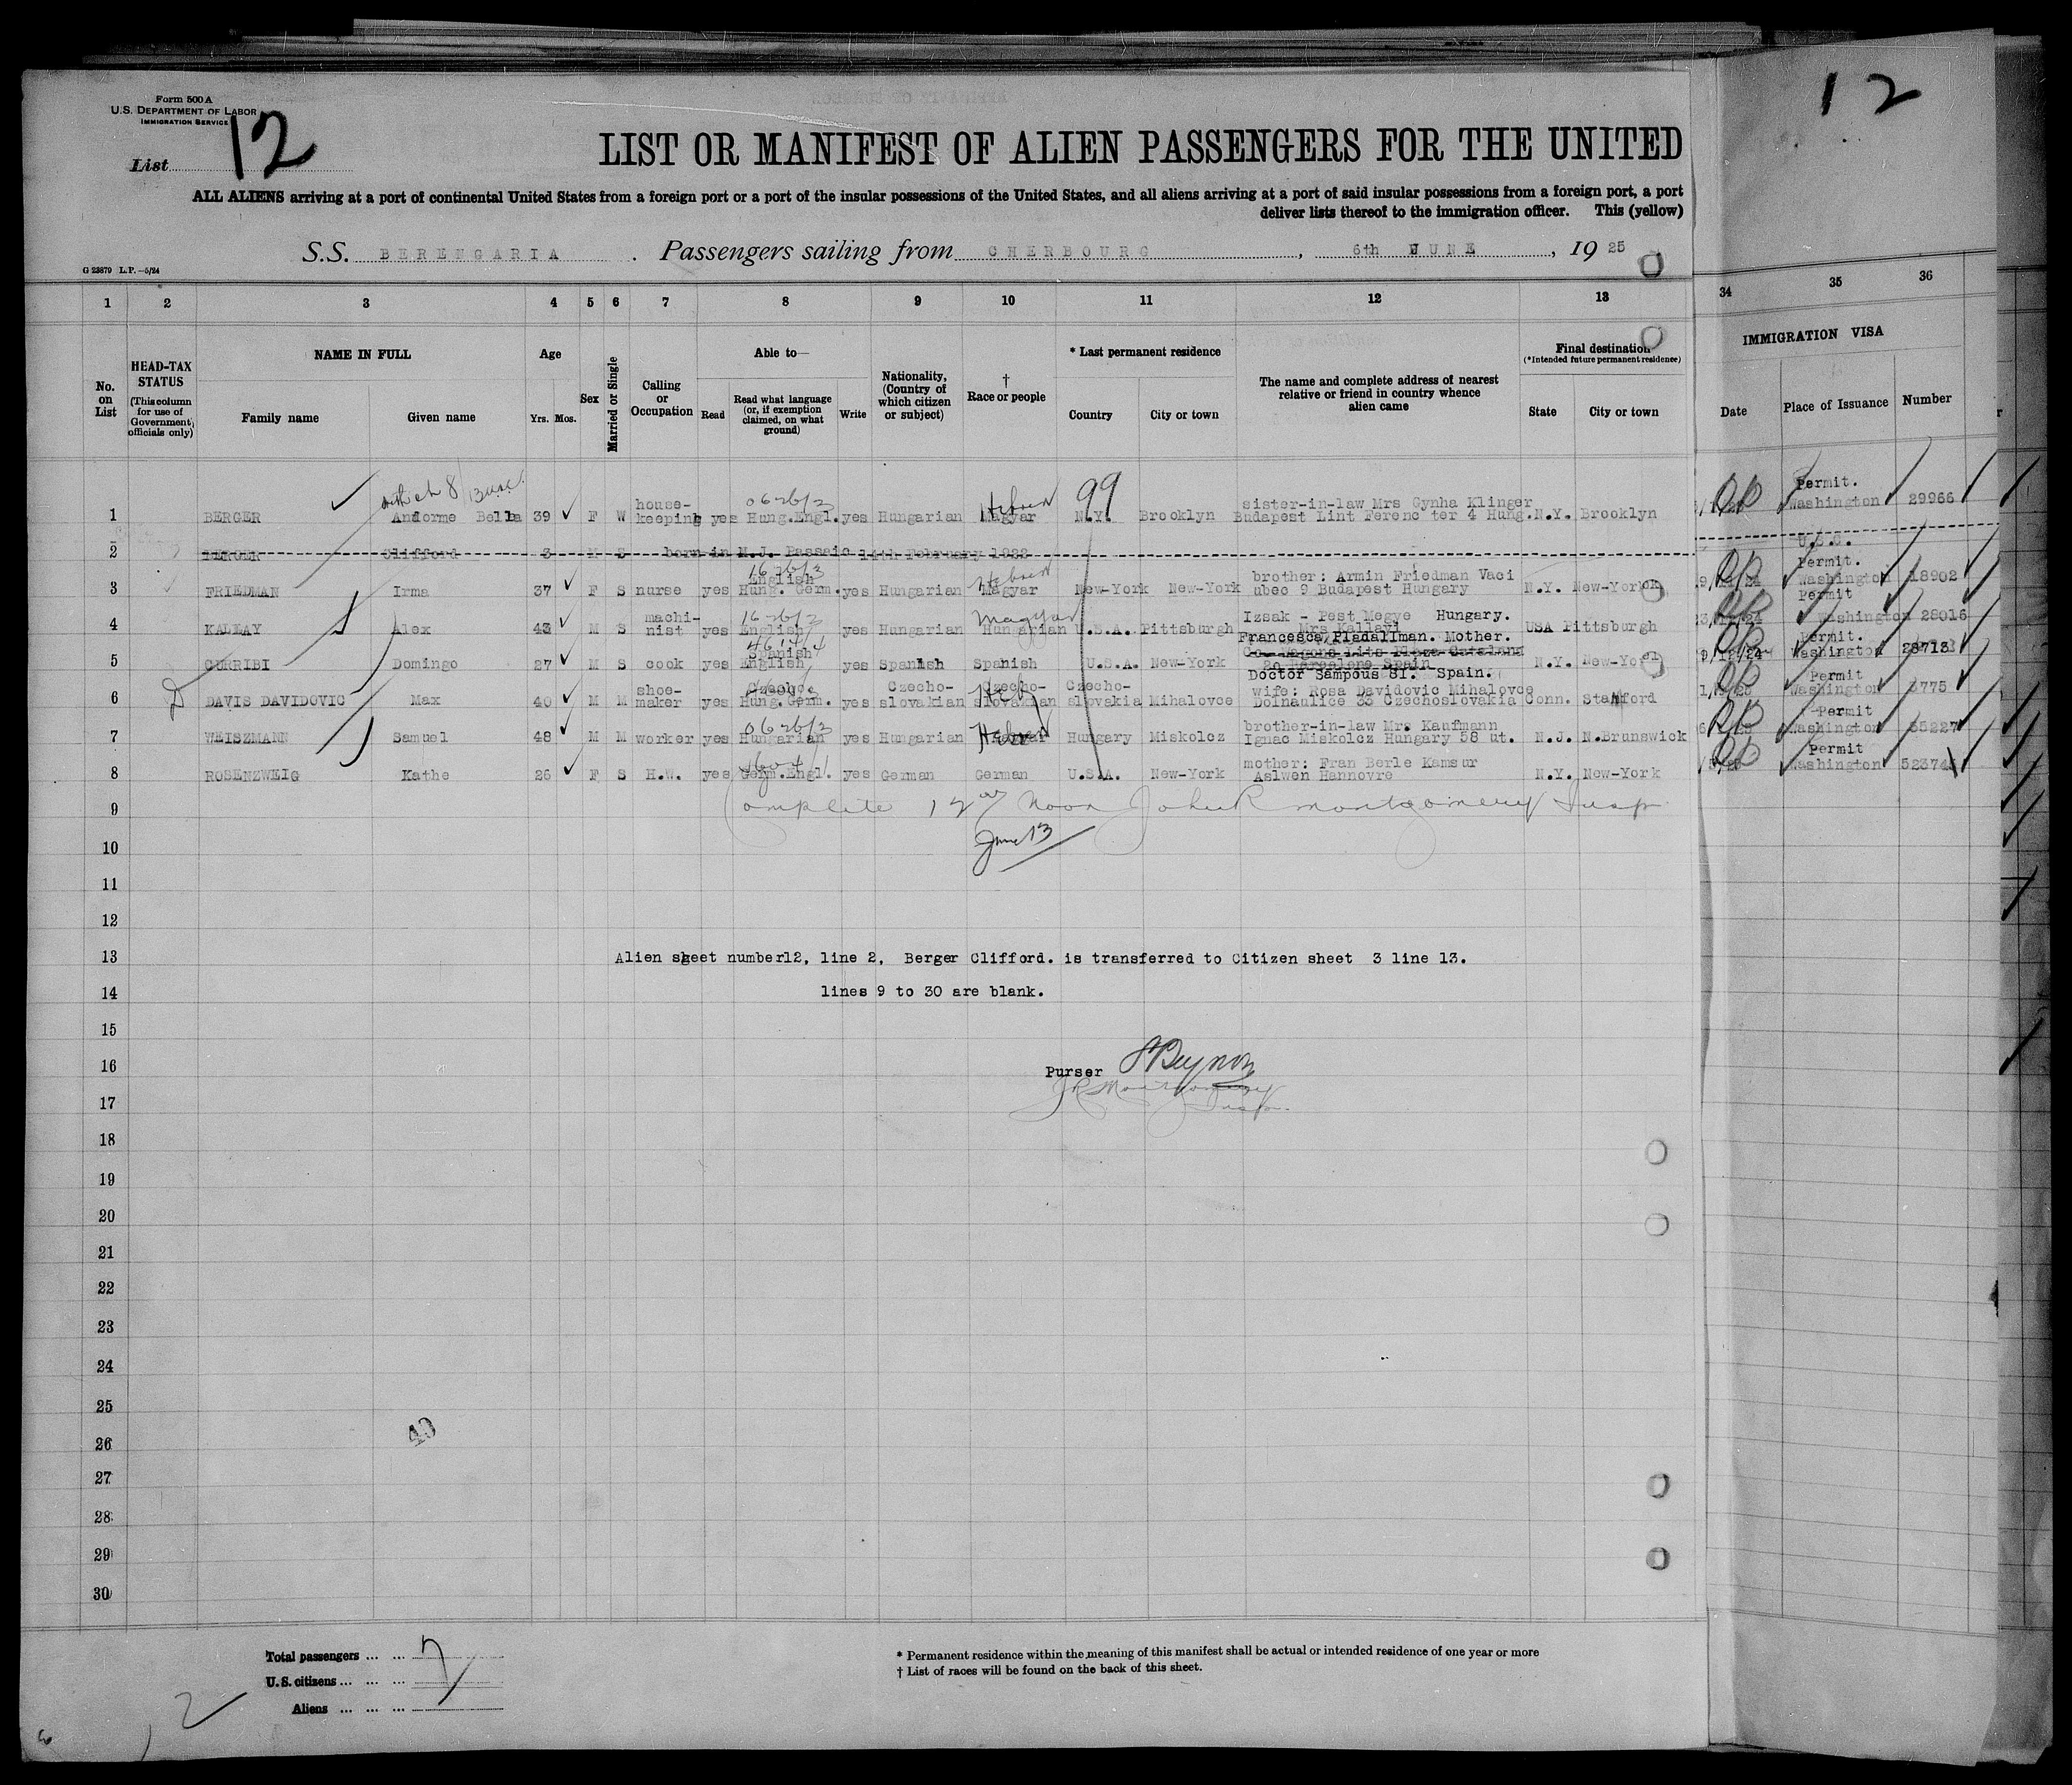 Form 500 A
U.S. DEPARTMENT OF LABOR
IMMIGRATION SERVICE
List 12
12
LIST OR MANIFEST OF ALIEN PASSENGERS FOR THE UNITED
ALL ALIENS arriving at a port of continental United States from a foreign port or a port of the insular possessions of the United States, and all aliens arriving at a port of said insular possessions from a foreign port, a port
deliver lists thereof to the immigration officer. This (yellow)
S.S. BERENGARIA . Passengers sailing from CHERBOURG , 6th JUNE , 19 25
G 23879 L.P.—5/24
1 2 3 4 5 6 7 8 9 10 11 12 13 34 35 36
No. on List
HEAD-TAX STATUS (This column for use of Government officials only)
NAME IN FULL Family name Given name
Age Yrs. Mos.
Sex
Married or Single
Calling or Occupation
Able to— Read Read what language (or, if exemption claimed, on what ground) Write
Nationality, (Country of which citizen or subject)
† Race or people
* Last permanent residence Country City or town
The name and complete address of nearest relative or friend in country whence alien came
Final destination (*Intended future permanent residence) State City or town
IMMIGRATION VISA Date Place of Issuance Number
1 BERGER Andorme Bella 39 F W house-keeping yes Hung.Engl. yes Hungarian Magyar Hebrew 99 N.Y. Brooklyn sister-in-law Mrs Gynha Klinger Budapest Lint Ferenc ter 4 Hung. N.Y. Brooklyn Permit. Washington 29966
2 BERGER Clifford 3 M S born in N.J. Passaic 14th February 1922 U.S.C.
3 FRIEDMAN Irma 37 F S nurse yes English Hung. Germ. yes Hungarian Magyar Hebrew New-York New-York brother: Armin Friedman Vaci ubec 9 Budapest Hungary N.Y. New-York Permit. Washington 18902
4 KALLAY Alex 43 M S machi-nist yes English yes Hungarian Hungarian Magyar U.S.A. Pittsburgh Izsak - Pest Megye Hungary. Mrs Kallay USA Pittsburgh Permit Washington 28016
5 CURRIBI Domingo 27 M S cook yes Spanish English yes Spanish Spanish U.S.A. New-York Francesca Pladallman. Mother. Doctor Sampous 81. Spain. N.Y. New-York Permit. Washington 28713
6 DAVIS DAVIDOVIC Max 40 M M shoe-maker yes Czecho. Hung.Germ. yes Czecho-slovakian Czecho-slovakian Heb Czecho-slovakia Mihalovce wife: Rosa Davidovic Mihalovce Dolnaulice 33 Czechoslovakia Conn. Stamford Permit Washington 3775
7 WEISZMANN Samuel 48 M M worker yes Hungarian yes Hungarian Hebrew Hungary Miskolcz brother-in-law Mr. Kaufmann Ignac Miskolcz Hungary 58 ut. N.J. N.Brunswick Permit Washington 35227
8 ROSENZWEIG Kathe 26 F S H.W. yes Germ.Engl. yes German German U.S.A. New-York mother: Fran Berle Kamsur Aslwen Hannovre N.Y. New-York Permit Washington 52374
9 Complete 12 Noon John R Montgomery Insp
10 June 13
11
12
13 Alien sheet number12, line 2, Berger Clifford. is transferred to Citizen sheet 3 line 13.
14 lines 9 to 30 are blank.
15
16 Purser
17 J R Montgomery Insp.
18
19
20
21
22
23
24
25
26
27
28
29
30
Total passengers ... ... 7
U.S. citizens ... ... ...
Aliens ... ... ...
* Permanent residence within the meaning of this manifest shall be actual or intended residence of one year or more
† List of races will be found on the back of this sheet.